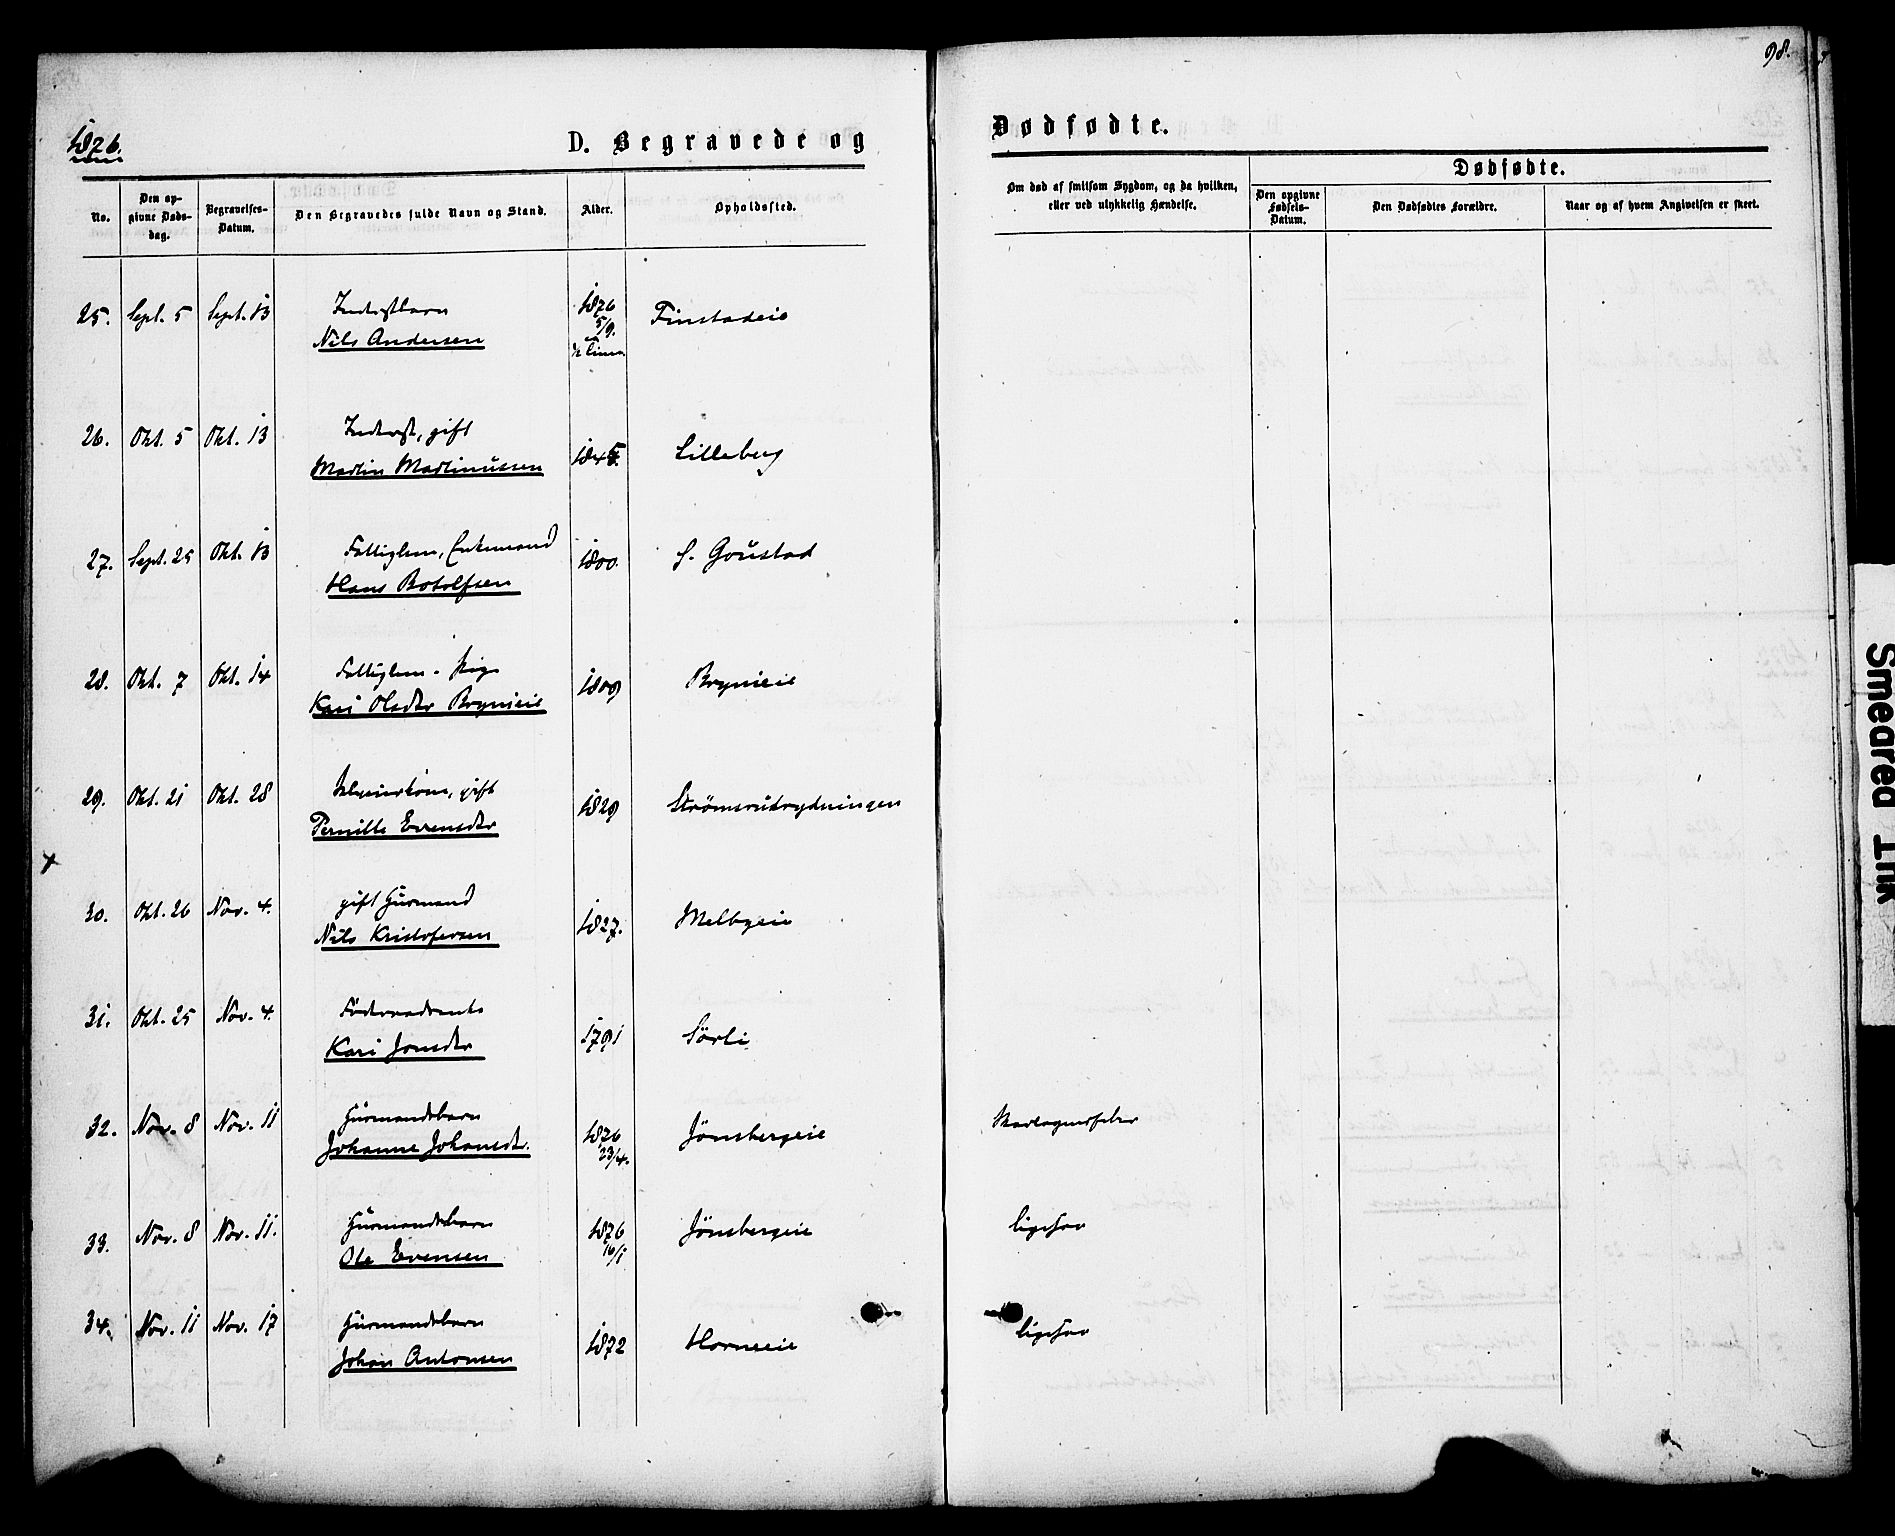 98.
1876.
D. Begravede og
Dødfødte.
No.
Den opgivne Dødsdag.
Begravelses-Datum.
Den Begravedes fulde Navn og Stand.
Alder.
Opholdssted.
Om død af smitsom Sygdom, og da hvilken, eller ved ulykkelig Hændelse.
Dødfødte.
Den opgivne Fødsels-Datum.
Den Dødfødtes Forældre.
Naar og af hvem Angivelsen er skeet.
25. Sept. 5 Sept. 13 Inderstbarn 1876 Finstadeie
Nils Andersen 5/9.
26. Okt. 5 Okt. 13 Inderst, gift
Martin Martinussen 1845. Lilleberg
27. Sept. 25 Okt. 13 Fattiglem, Enkemand 1800. S. Goustad
Hans Botolfsen
28. Okt. 7 Okt. 14 Fattiglem. Pige 1809 Brynieie
Kari Olsdtr Brynieie
29. Okt. 21 Okt. 28 gift 1829 Strömsrudrydningen
Pernille Evensdtr
30. Okt. 26 Nov. 4. gift Husmand 1827. Melbyeie
Nils Kristofersen
31. Okt. 25 Nov. 4. Föderaadsenke 1791 Sörli
Kari Jonsdtr
32. Nov. 8 Nov. 11 Husmandsbarn 1876 Jönsbergeie Skarlagensfeber
Johanne Johansdtr. 23/4.
33. Nov. 8 Nov. 11. Husmandsbarn 1876 Jönsbergeie ligesaa
Ole Evensen 16/1
34. Nov. 11 Nov. 17 Husmandsbarn 1872 Horneeie ligesaa
Johan Antonsen
Smeared Ink